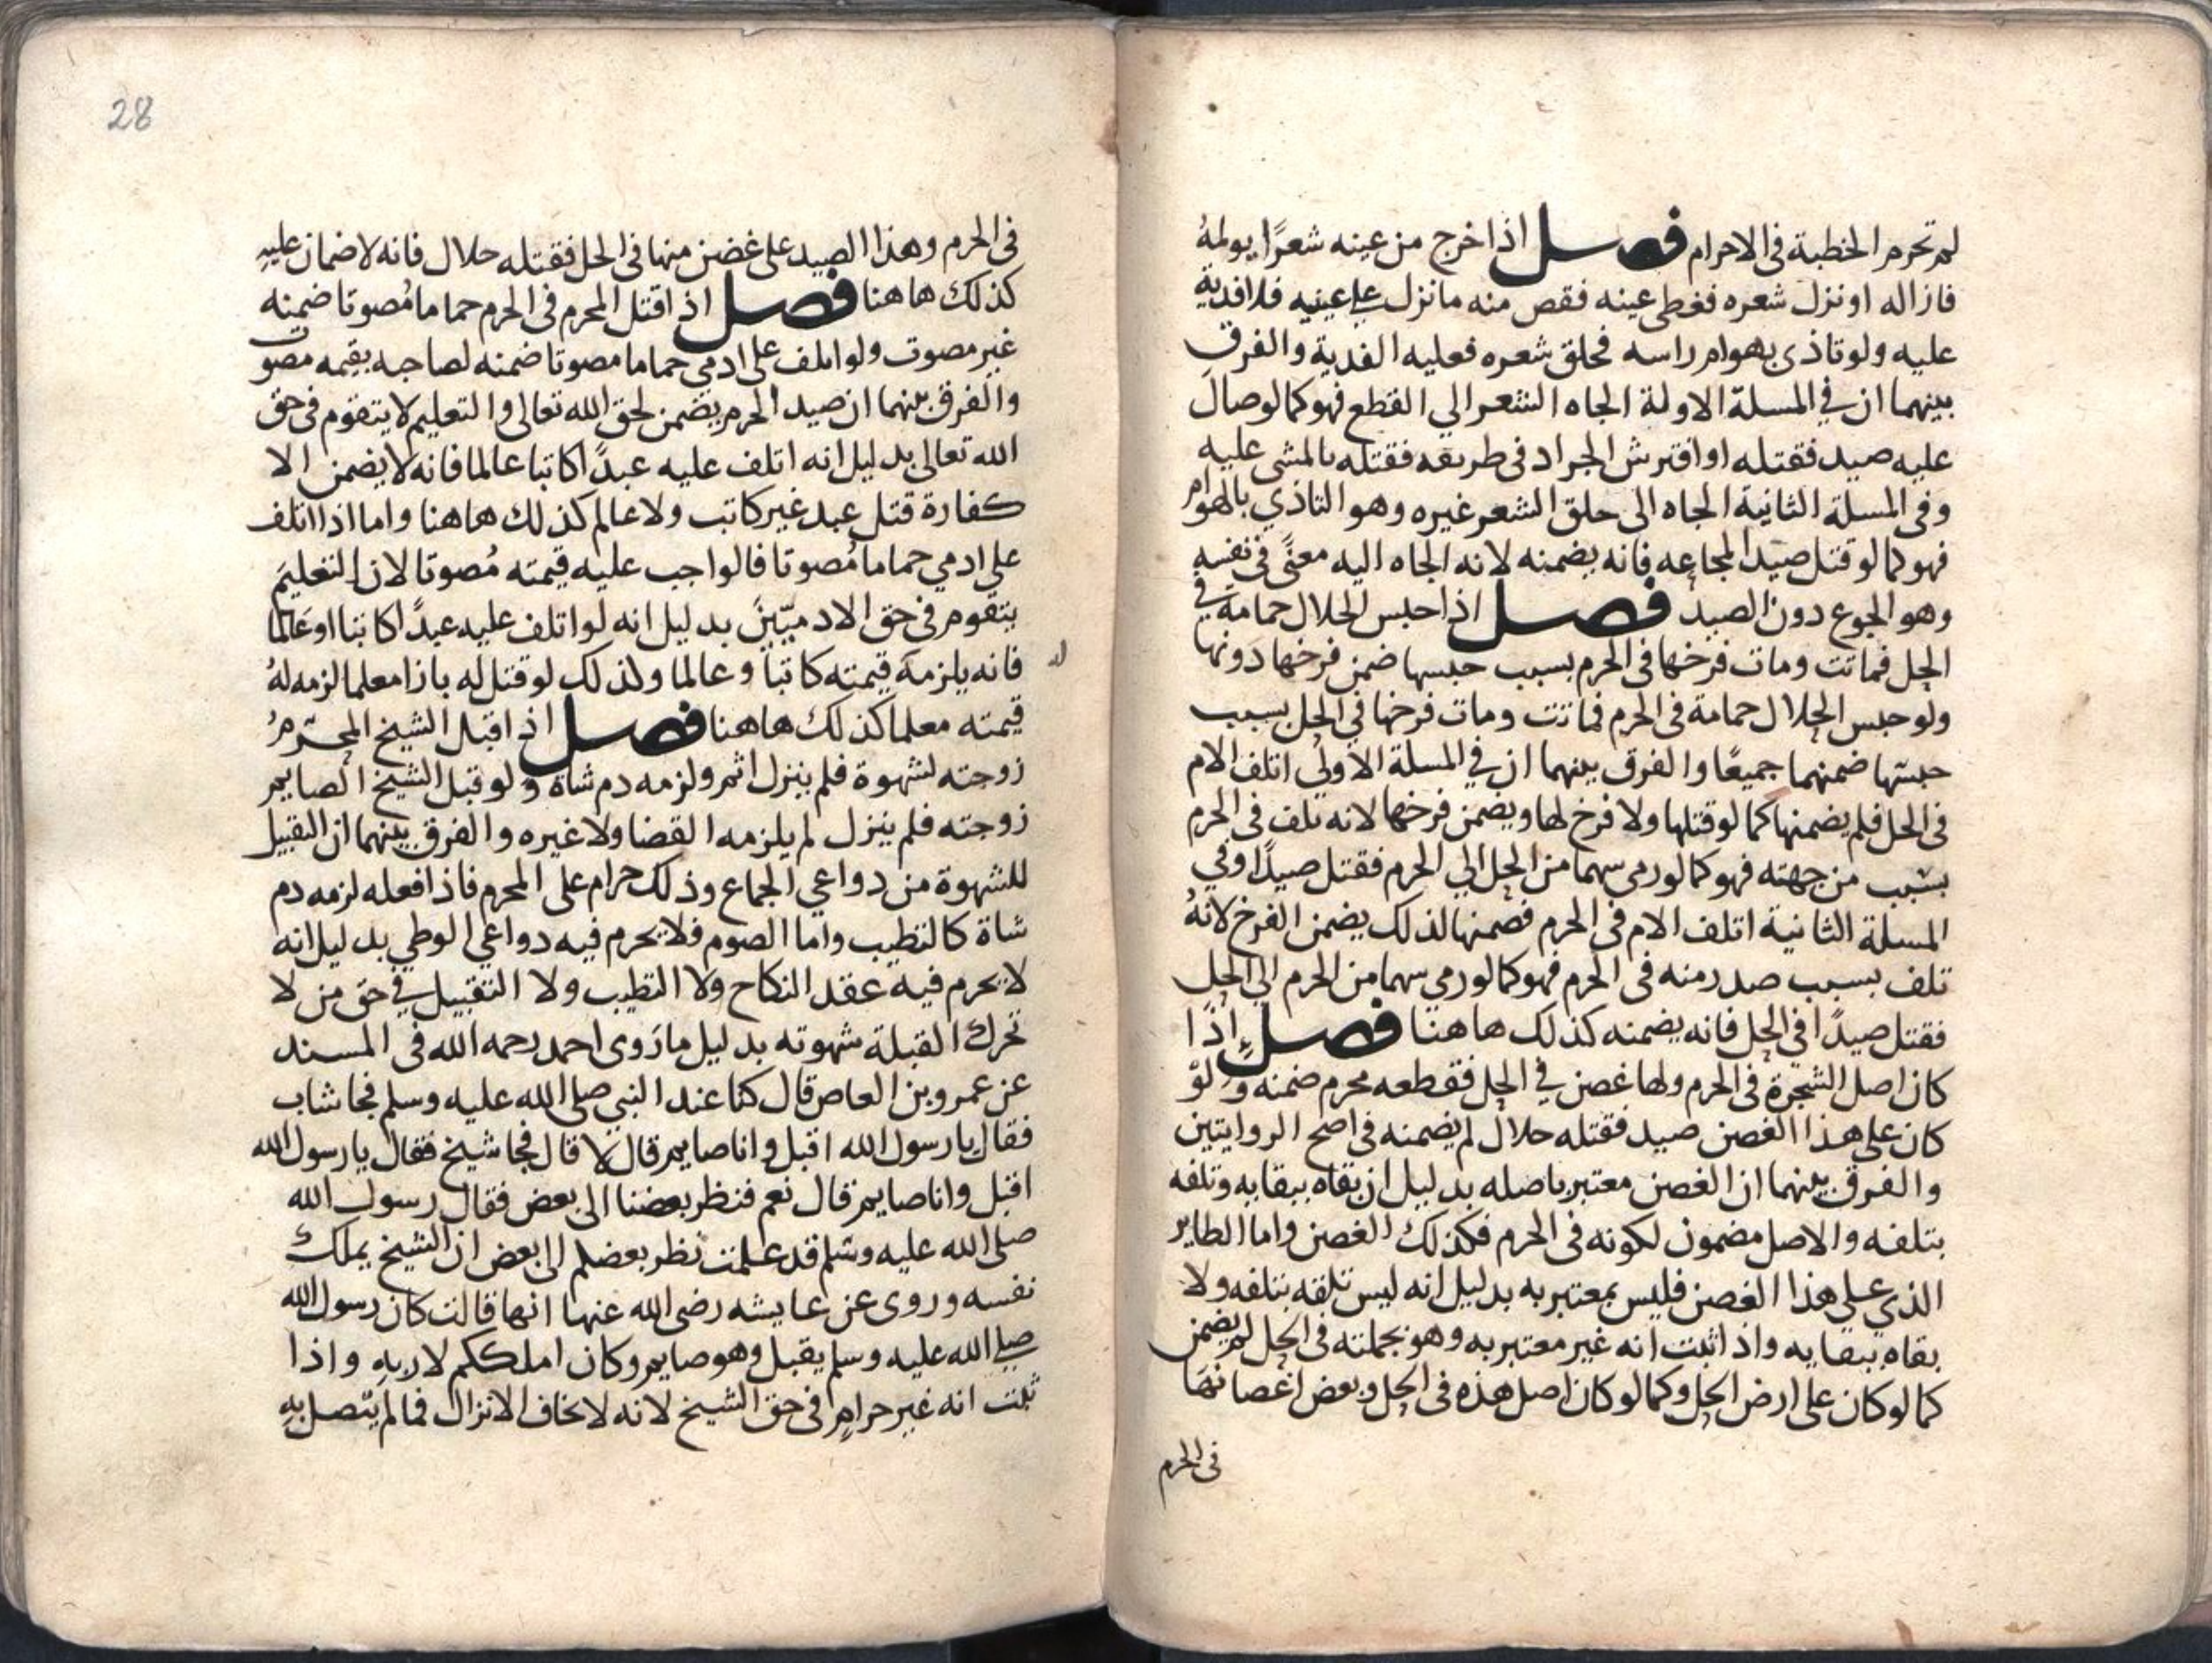 لم تحرم الخطبة فى الاحرام فصل اذا خرج من عينه شعرًا يولمهُ
فازاله او نزل شعره فغطى عينه فقص منه ما نزل على عينيه فلا فدية
عليه ولو تاذى بهوام راسه فحلق شعره فعليه الفدية والفرق
بينهما ان في المسلة الاولة الجاه الشعر الي القطع فهو كما لو صال
عليه صيد فقتله او افترش الجراد فى طريقه فقتله بالمشى عليه
وفى المسلة الثانية الجاه الى حلق الشعر غيره وهو التاذي بالهوام
فهو كما لو قتل صيدا لمجاعه فانه يضمنه لانه الجاه اليه معنًى فى نفسه
وهو الجوع دون الصيد فصل اذا حبس الحلال حمامة في
الحل فماتت ومات فرخها فى الحرم بسبب حبسها ضمن فرخها دونها
ولو حبس الحلال حمامة فى الحرم فماتت ومات فرخها في الحل بسبب
حبسها ضمنهما جميعًا والفرق بينهما ان في المسلة الاولي اتلف الام
فى الحل فلم يضمنها كما لو قتلها ولا فرخ لها ويضمن فرخها لانه تلف فى الحرم
بسبب من جهته فهو كما لو رمى سهما من الحل الي الحرم فقتل صيدًا وفي
المسلة الثانية اتلف الام فى الحرم فضمنها لذلك يضمن الفرخ لانهُ
تلف بسبب صدر منه فى الحرم فهو كما لو رمي سهما من الحرم الي الحل
فقتل صيدًا في الحل فانه يضمنه كذلك هاهنا فصل إذا
كان اصل الشجرة فى الحرم ولها غصن في الحل فقطعه محرم ضمنه ولو
كان على هذا الغصن صيد فقتله حلال لم يضمنه فى اصح الروايتين
والفرق بينهما ان الغصن معتبر باصله بدليل ان بقاه ببقايه وتلفه
بتلفه والاصل مضمون لكونه فى الحرم فكذلك الغصن واما الطاير
الذي على هذا الغصن فليس بمعتبر به بدليل انه ليس تلفه بتلفه ولا
بقاه ببقايه واذا ثبت انه غير معتبر به وهو بجملته فى الحل لم يضمن
كما لو كان على ارض الحل وكما لو كان اصل هذه فى الحل وبعض اغصانها
فى الحرم
28
فى الحرم وهذا الصيد على غصن منها فى الحل فقتله حلال فانه لا ضمان عليه
كذلك هاهنا فصل اذا قتل المحرم فى الحرم حماما مُصوتا ضمنه
غير مصوت ولو اتلف على ادمي حماما مصوتا ضمنه لصاحبه بقيمه مصوت
والفرق بينهما ان صيد الحرم يضمن لحق الله تعالى والتعليم لا يتقوم فى حق
الله تعالى بدليل انه اتلف عليه عبدًا كاتبا عالما فانه لا يضمن الا
كفارة قتل عبد غير كاتب ولا عالم كذلك هاهنا واما اذا اتلف
على ادمي حماما مُصوتا فالواجب عليه قيمته مُصوتا لان التعليمَ
يتقوم في حق الادميّينَ بدليل انه لو اتلف عليه عبدًا كاتبا او عَالما
فانه يلزمه قيمته كاتبا وعالما ولذلك لو قتل له بازا معلما لزمه لهُ
له
قيمته معلما كذلك هاهنا فصل اذا قبل الشيخ المحرمُ
زوجته لشهوة فلم ينزل اثم ولزمه دم شاة ولو قبل الشيخ الصايم
زوجته فلم ينزل لم يلزمه القضا ولا غيره والفرق بينهما ان التقبيل
للشهوة من دواعي الجماع وذلك حرام على المحرم فاذا فعله لزمه دم
شاة كالتطيب واما الصوم فلا يحرم فيه دواعي الوطي بدليل انه
لا يحرم فيه عقد النكاح ولا التطيب ولا التقبيل في حق من لا
تحرك القبلة شهوته بدليل ما رَوى احمد رحمه الله فى المسند
عن عمرو بن العاص قال كنا عند النبي صلى الله عليه وسلم فجا شاب
فقال يا رسول الله اقبل وانا صايم قال لا قال فجا شيخ فقال يا رسول الله
اقبل وانا صايم قال نعم فنظر بعضنا الى بعض فقال رسول الله
صلى الله عليه وسلم قد علمت نظر بعضكم الى بعض ان الشيخ يملك
نفسه وروى عن عايشه رضى الله عنها انها قالت كان رسول الله
صلى الله عليه وسلم يقبل وهو صايم وكان املككم لاربهِ واذا
ثبت انه غير حرامٍ فى حق الشيخ لانه لا يخاف الانزال فما لم يتّصل بهِ